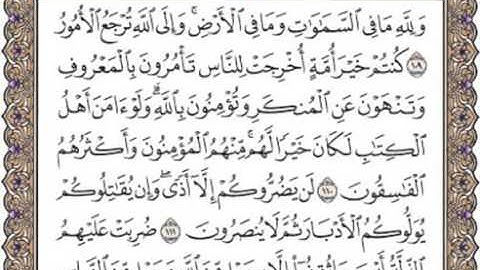 وَلِلَّهِ مَا فِي السَّمَاوَاتِ وَمَا فِي الْأَرْضِ ۚ وَإِلَى اللَّهِ تُرْجَعُ الْأُمُورُ
١٠٩ كُنْتُمْ خَيْرَ أُمَّةٍ أُخْرِجَتْ لِلنَّاسِ تَأْمُرُونَ بِالْمَعْرُوفِ
وَتَنْهَوْنَ عَنِ الْمُنْكَرِ وَتُؤْمِنُونَ بِاللَّهِ ۗ وَلَوْ ءَامَنَ أَهْلُ
الْكِتَابِ لَكَانَ خَيْرًا لَهُمْ ۚ مِنْهُمُ الْمُؤْمِنُونَ وَأَكْثَرُهُمُ
الْفَاسِقُونَ ١١٠ لَنْ يَضُرُّوكُمْ إِلَّا أَذًى ۖ وَإِنْ يُقَاتِلُوكُمْ
يُوَلُّوكُمُ الْأَدْبَارَ ثُمَّ لَا يُنْصَرُونَ ١١١ ضُرِبَتْ عَلَيْهِمُ